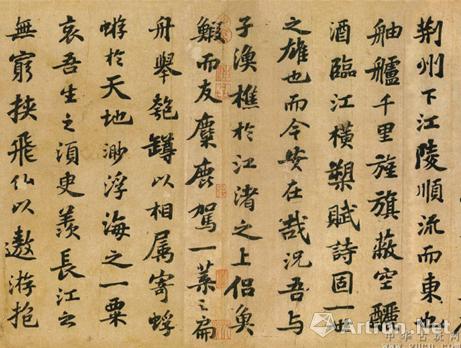 荆州下江陵順流而東也
舳艫千里旌旗蔽空釃
酒臨江橫槊賦詩固一世
之雄也而今安在哉況吾與
子漁樵於江渚之上侶魚
鰕而友麋鹿駕一葉之扁
舟舉匏罇以相屬寄蜉
蝣於天地渺浮海之一粟
哀吾生之須臾羨長江之
無窮挾飛仙以遨游抱
Artron.Net